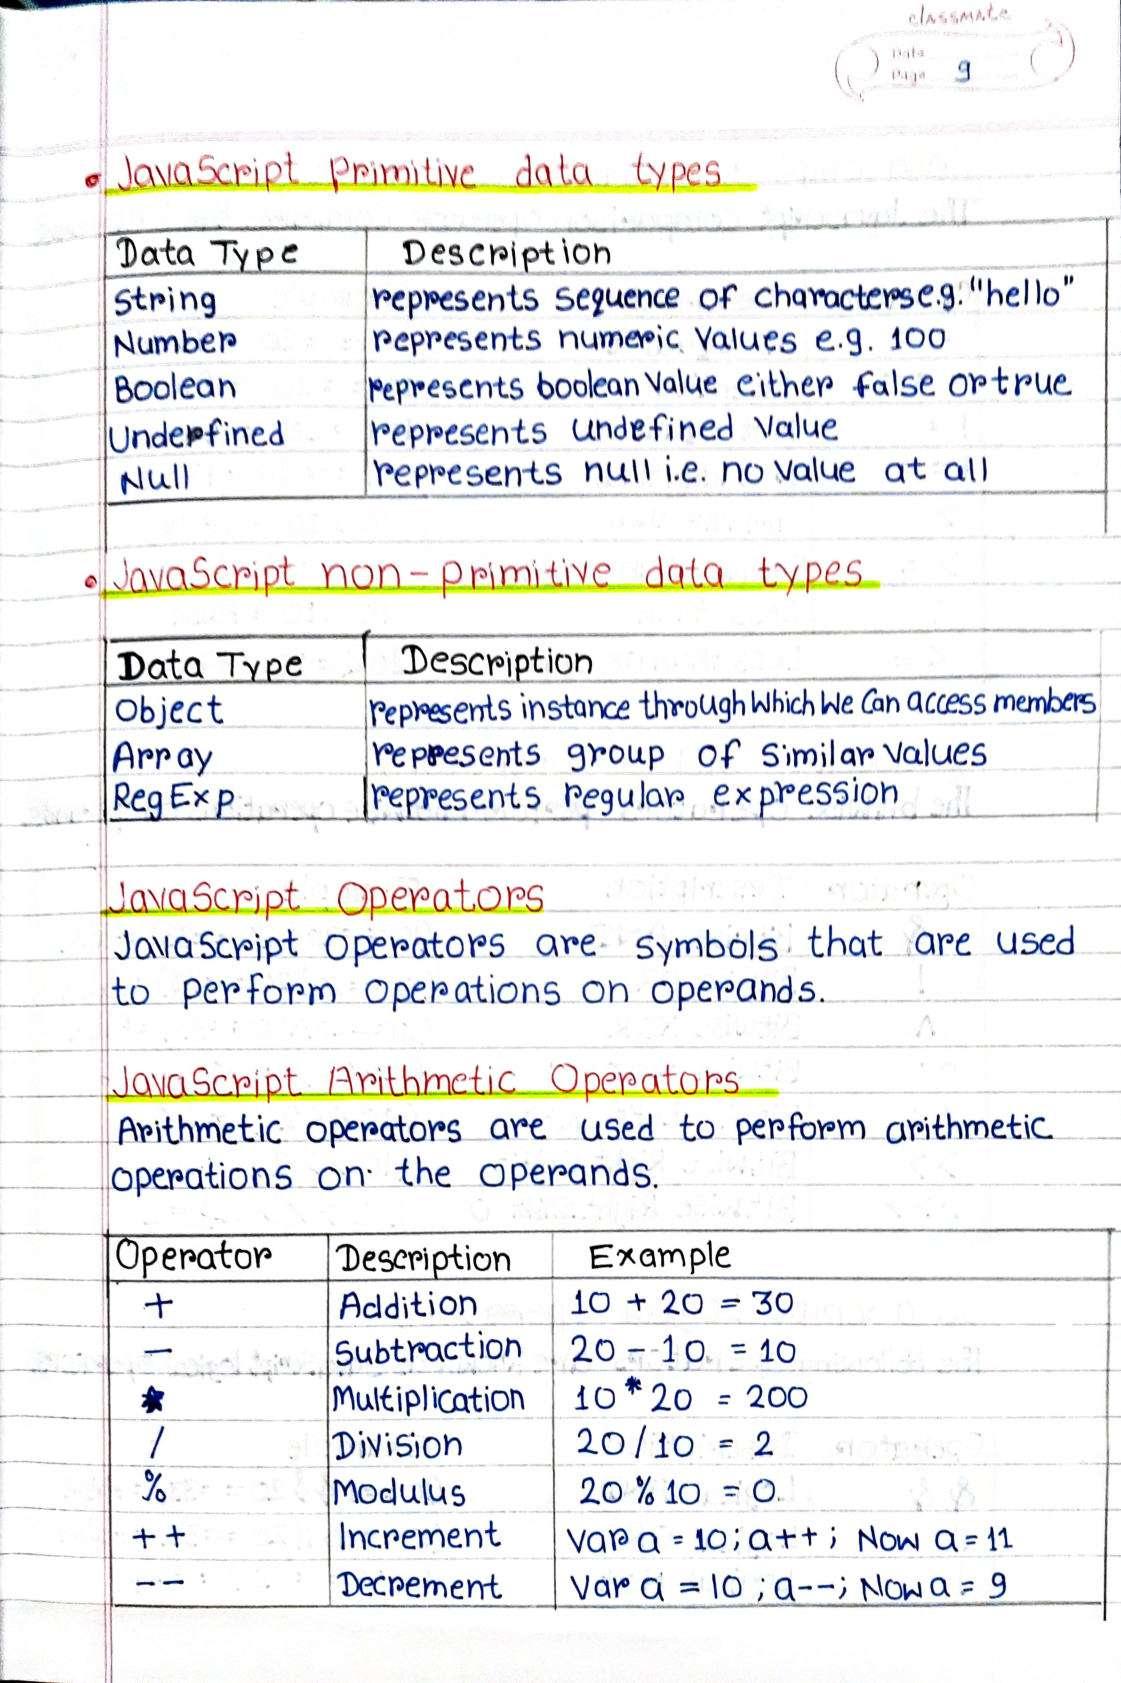 classmate
Date
Page 9
JavaScript primitive data types
Data Type Description
String represents sequence of characters e.g. "hello"
Number represents numeric values e.g. 100
Boolean represents boolean value either false or true
Underfined represents undefined value
Null represents null i.e. no value at all
JavaScript non-primitive data types
Data Type Description
Object represents instance through which we can access members
Array represents group of similar values
RegExp represents regular expression
JavaScript Operators
JavaScript operators are symbols that are used
to perform operations on operands.
JavaScript Arithmetic Operators
Arithmetic operators are used to perform arithmetic
operations on the operands.
Operator Description Example
+ Addition 10 + 20 = 30
- Subtraction 20 - 10 = 10
* Multiplication 10 * 20 = 200
/ Division 20 / 10 = 2
% Modulus 20 % 10 = 0
++ Increment Var a = 10; a++; Now a = 11
-- Decrement Var a = 10; a--; Now a = 9